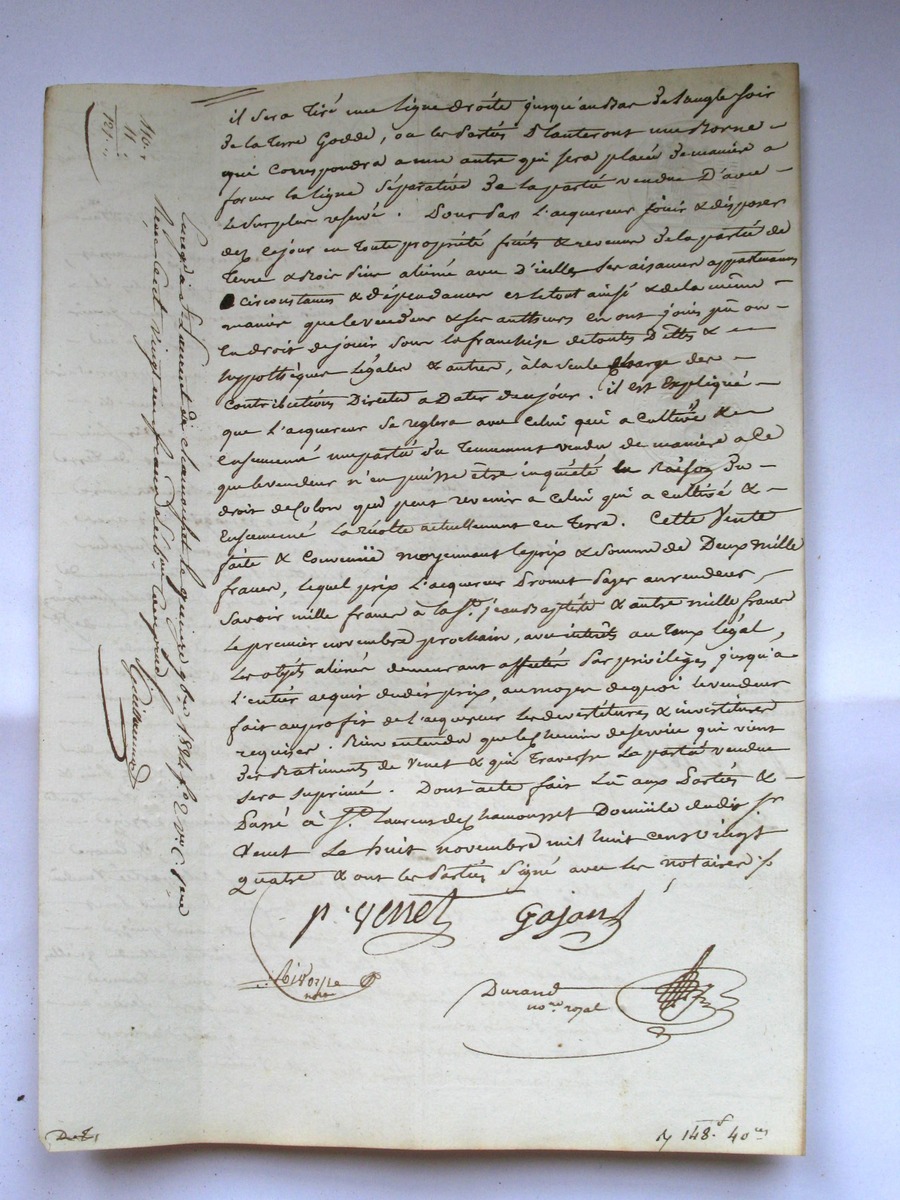 il sera tiré une ligne droite jusqu'au bas de l'angle soir
de la terre Godde, ou les parties planteront une Borne
qui correspondra a une autre qui sera placée de manière a
former la ligne séparative de la partie vendue D'avec
le surplus reservé. Pour par l'acquereur jouir & disposer
dez ce jour en toute propriété fruits & revenus de la partie de
terre & Bois pin aliéné avec D'icelles ses aisances appartenances
circonstances & dépendances et le tout ainsi & de la même
manière que le vendeur & ses autheurs en ont jouis pû ou
eu droit de jouir sous la franchise de touts Dettes &
hyppothèques légales & autres, à la seule charge des
contributions Directes a Dater de ce jour. il est Expliqué
que L'acquereur se reglera avec celui qui a cultivé &
ensemencé une partie du tennement vendu de manière a ce
que le vendeur n'en puisse être inquiété la Raison du
droit de colon qui peut revenir a celui qui a cultivé &
Ensemencé la récolte actuellement en terre. Cette Vente
faite & convenüe moyennant le prix & somme de Deux mille
francs, lequel prix L'acquereur Promet payer au vendeur
savoir mille francs à la St. jean Baptiste & autre mille francs
le premier novembre prochain, avec intérêts au taux légal,
les objets aliénés demeurant affectés par privilèges jusqu'a
L'entier acquit dudit prix, au moyen de quoi le vendeur
fait au profit de l'acquereur les devestitures & investitures
requises. Bien entendu que le chemin de service qui vient
des Batiments de Venet & qui traverse la partie vendue
sera suprimé. Dont acte fait Lû aux Parties &
Passé à St. Laurent de Chamousset Domicile dudit Sr
Venet le huit novembre mil huit cent vingt
quatre & ont les Parties signé avec les notaires
p. Venet Gajan
note
Durand
nore. royal
148. 40 ces
110.
11
121..
Enreg.é à St. Laurent de chamousset le quinze 9bre 1824 fo. 2 vo. C. 7 eme
Reçu cent vingt un francs decime compris
Guillaumond